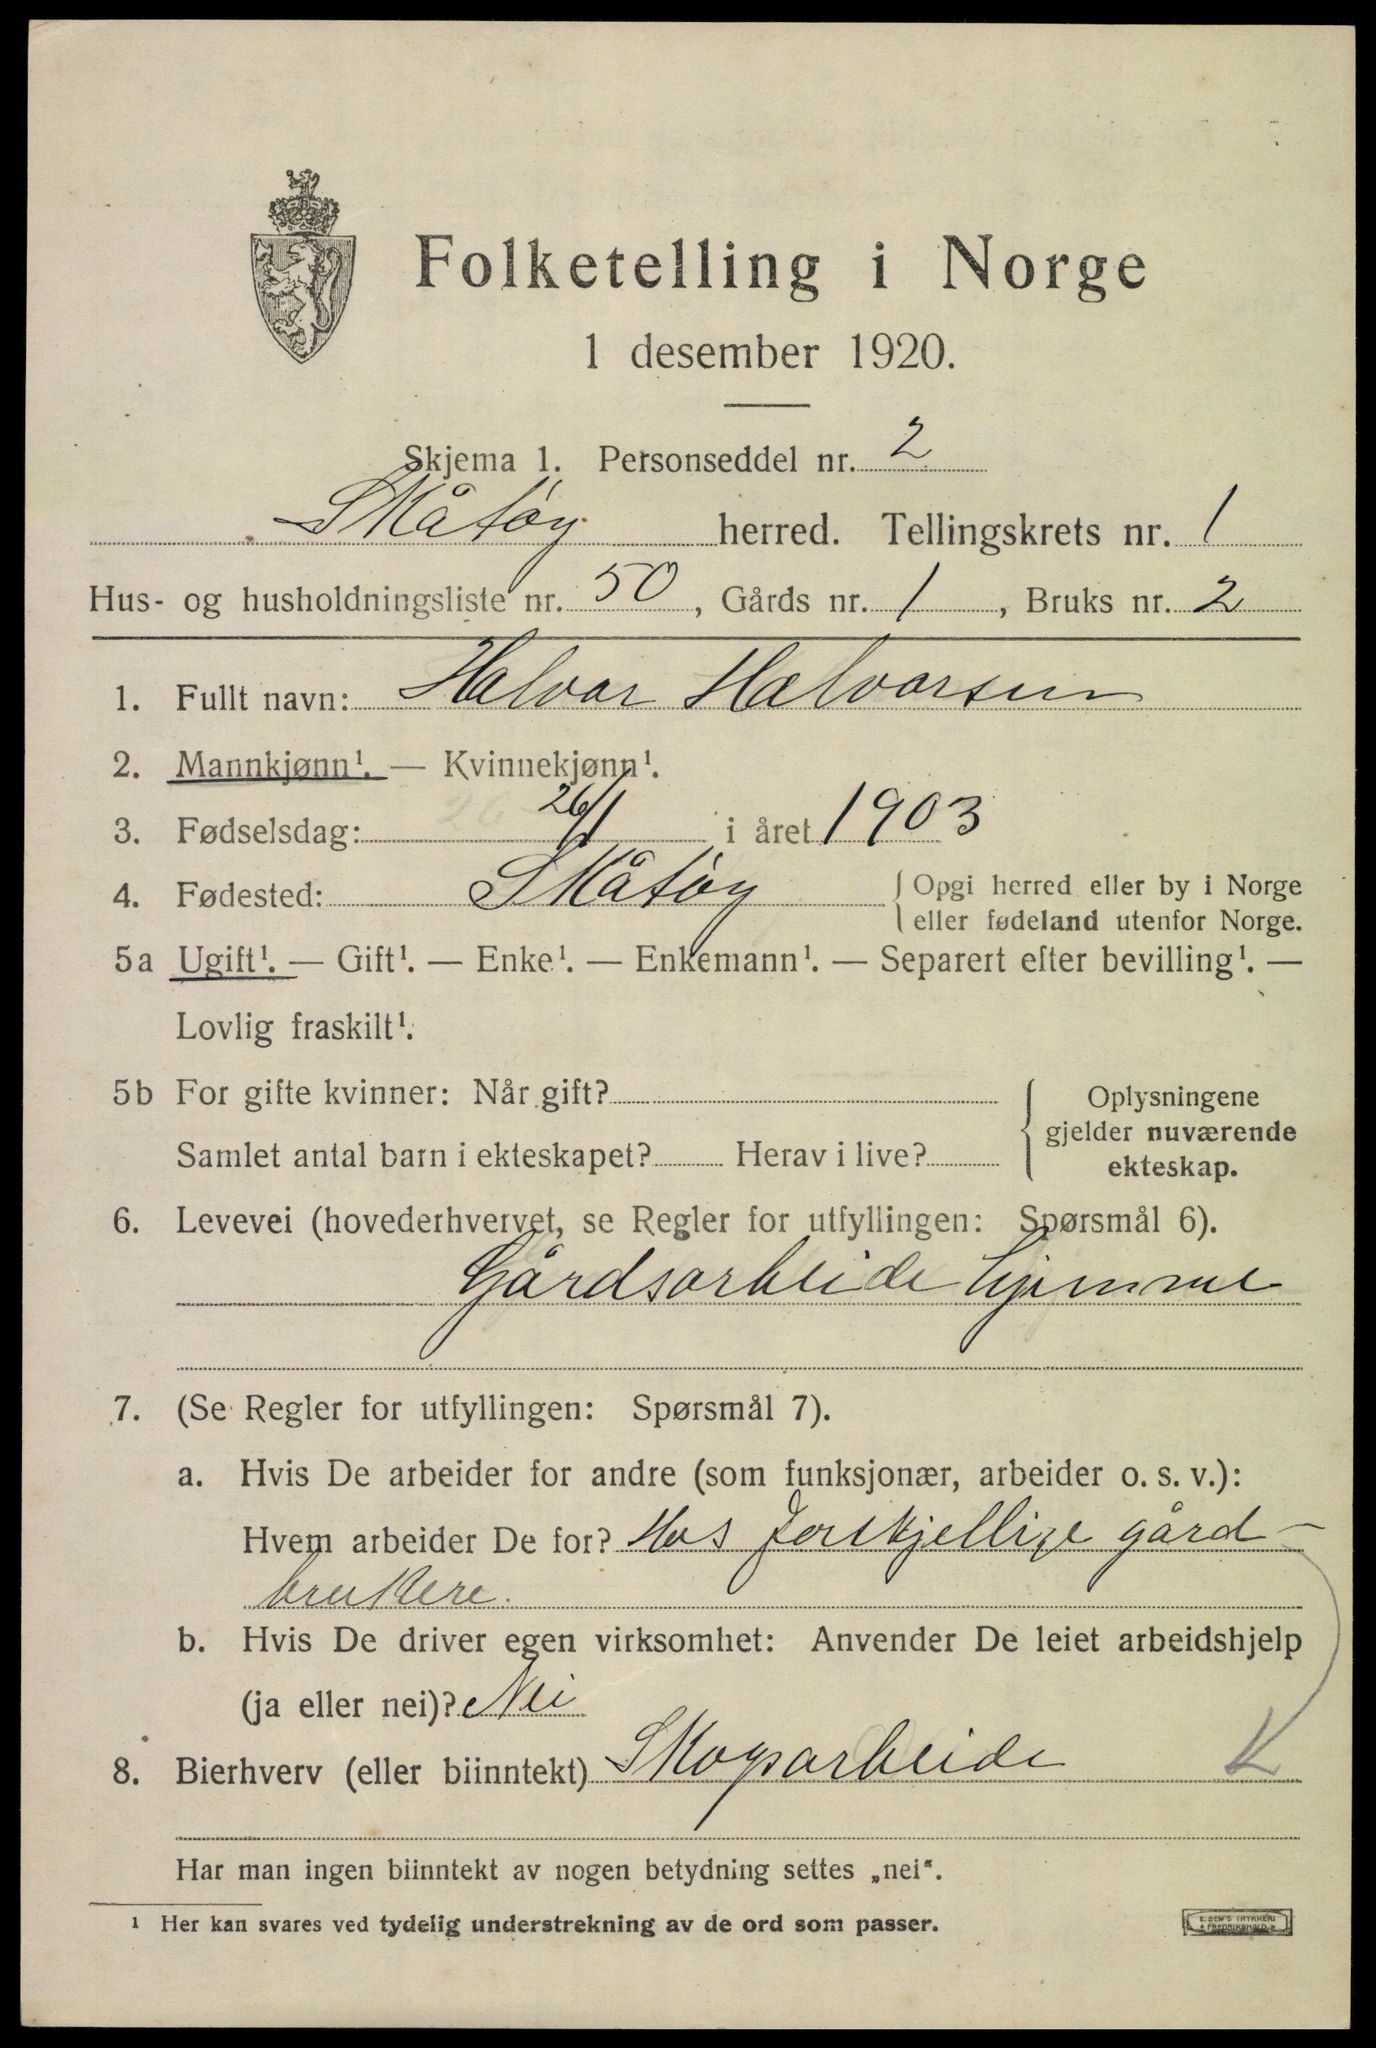 Folketelling i Norge
1 desember 1920.
Skjema 1. Personseddel nr. 2
Skåtøy herred. Tellingskrets nr. 1
Hus- og husholdningsliste nr. 50, Gårds nr. 1, Bruks nr. 2
1. Fullt navn: Halvor Halvorsen
2. Mannkjønn¹. — Kvinnekjønn¹.
3. Fødselsdag: 26/1 i året 1903
4. Fødested: Skåtøy { Opgi herred eller by i Norge
eller fødeland utenfor Norge.
5a Ugift¹. — Gift¹. — Enke¹. — Enkemann¹. — Separert efter bevilling¹. —
Lovlig fraskilt¹.
5b For gifte kvinner: Når gift? { Oplysningene
gjelder nuværende
Samlet antal barn i ekteskapet? Herav i live? ekteskap.
6. Levevei (hovederhvervet, se Regler for utfyllingen: Spørsmål 6).
Gårdsarbeide hjemme
7. (Se Regler for utfyllingen: Spørsmål 7).
a. Hvis De arbeider for andre (som funksjonær, arbeider o. s. v.):
Hvem arbeider De for? Hos forskjellige gård-
brukere.
b. Hvis De driver egen virksomhet: Anvender De leiet arbeidshjelp
(ja eller nei)? Nei
8. Bierhverv (eller biinntekt) Skogsarbeide K
Har man ingen biinntekt av nogen betydning settes „nei“.
¹ Her kan svares ved tydelig understrekning av de ord som passer.
E. SEM'S TRYKKERI
FREDRIKSHALD